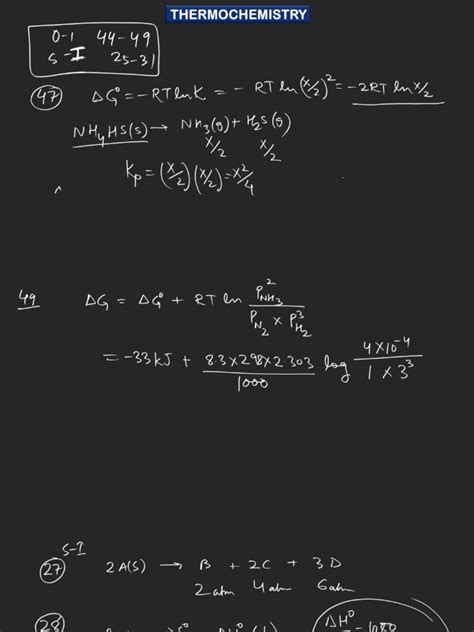 THERMOCHEMISTRY
0-1 44-49
S-I 25-31
47 ΔG° = -RTlnK = - RT ln(x/2)² = -2RT ln x/2
NH₄HS(s) → NH₃(g) + H₂S(g)
x/2 x/2
Kp = (x/2)(x/2) = x²/4
49 ΔG = ΔG° + RT ln P²NH₃ / P N₂ × P³H₂
= -33KJ + 8.3×298×2.303 / 1000 log 4×10⁻⁴ / 1×3³
S-I
27 2A(S) → B + 2C + 3D
2atm 4atm 6atm
28 ΔH°